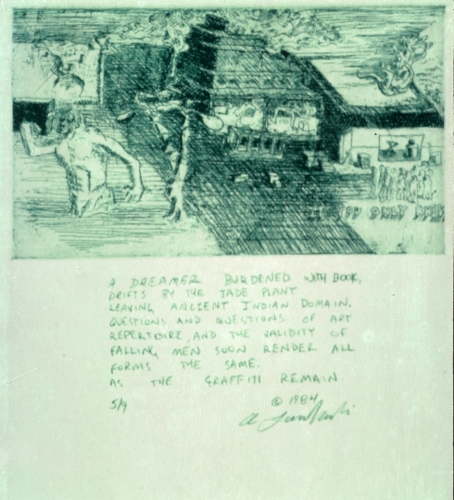 A DREAMER BURDENED WITH BOOK,
DRIFTS BY THE JADE PLANT
LEAVING ANCIENT INDIAN DOMAIN.
QUESTIONS AND QUESTIONS OF ART
REPERTOIRE, AND THE VALIDITY OF
FALLING MEN SOON RENDER ALL
FORMS THE SAME.
AS THE GRAFFITI REMAIN.
5/9 © 1984